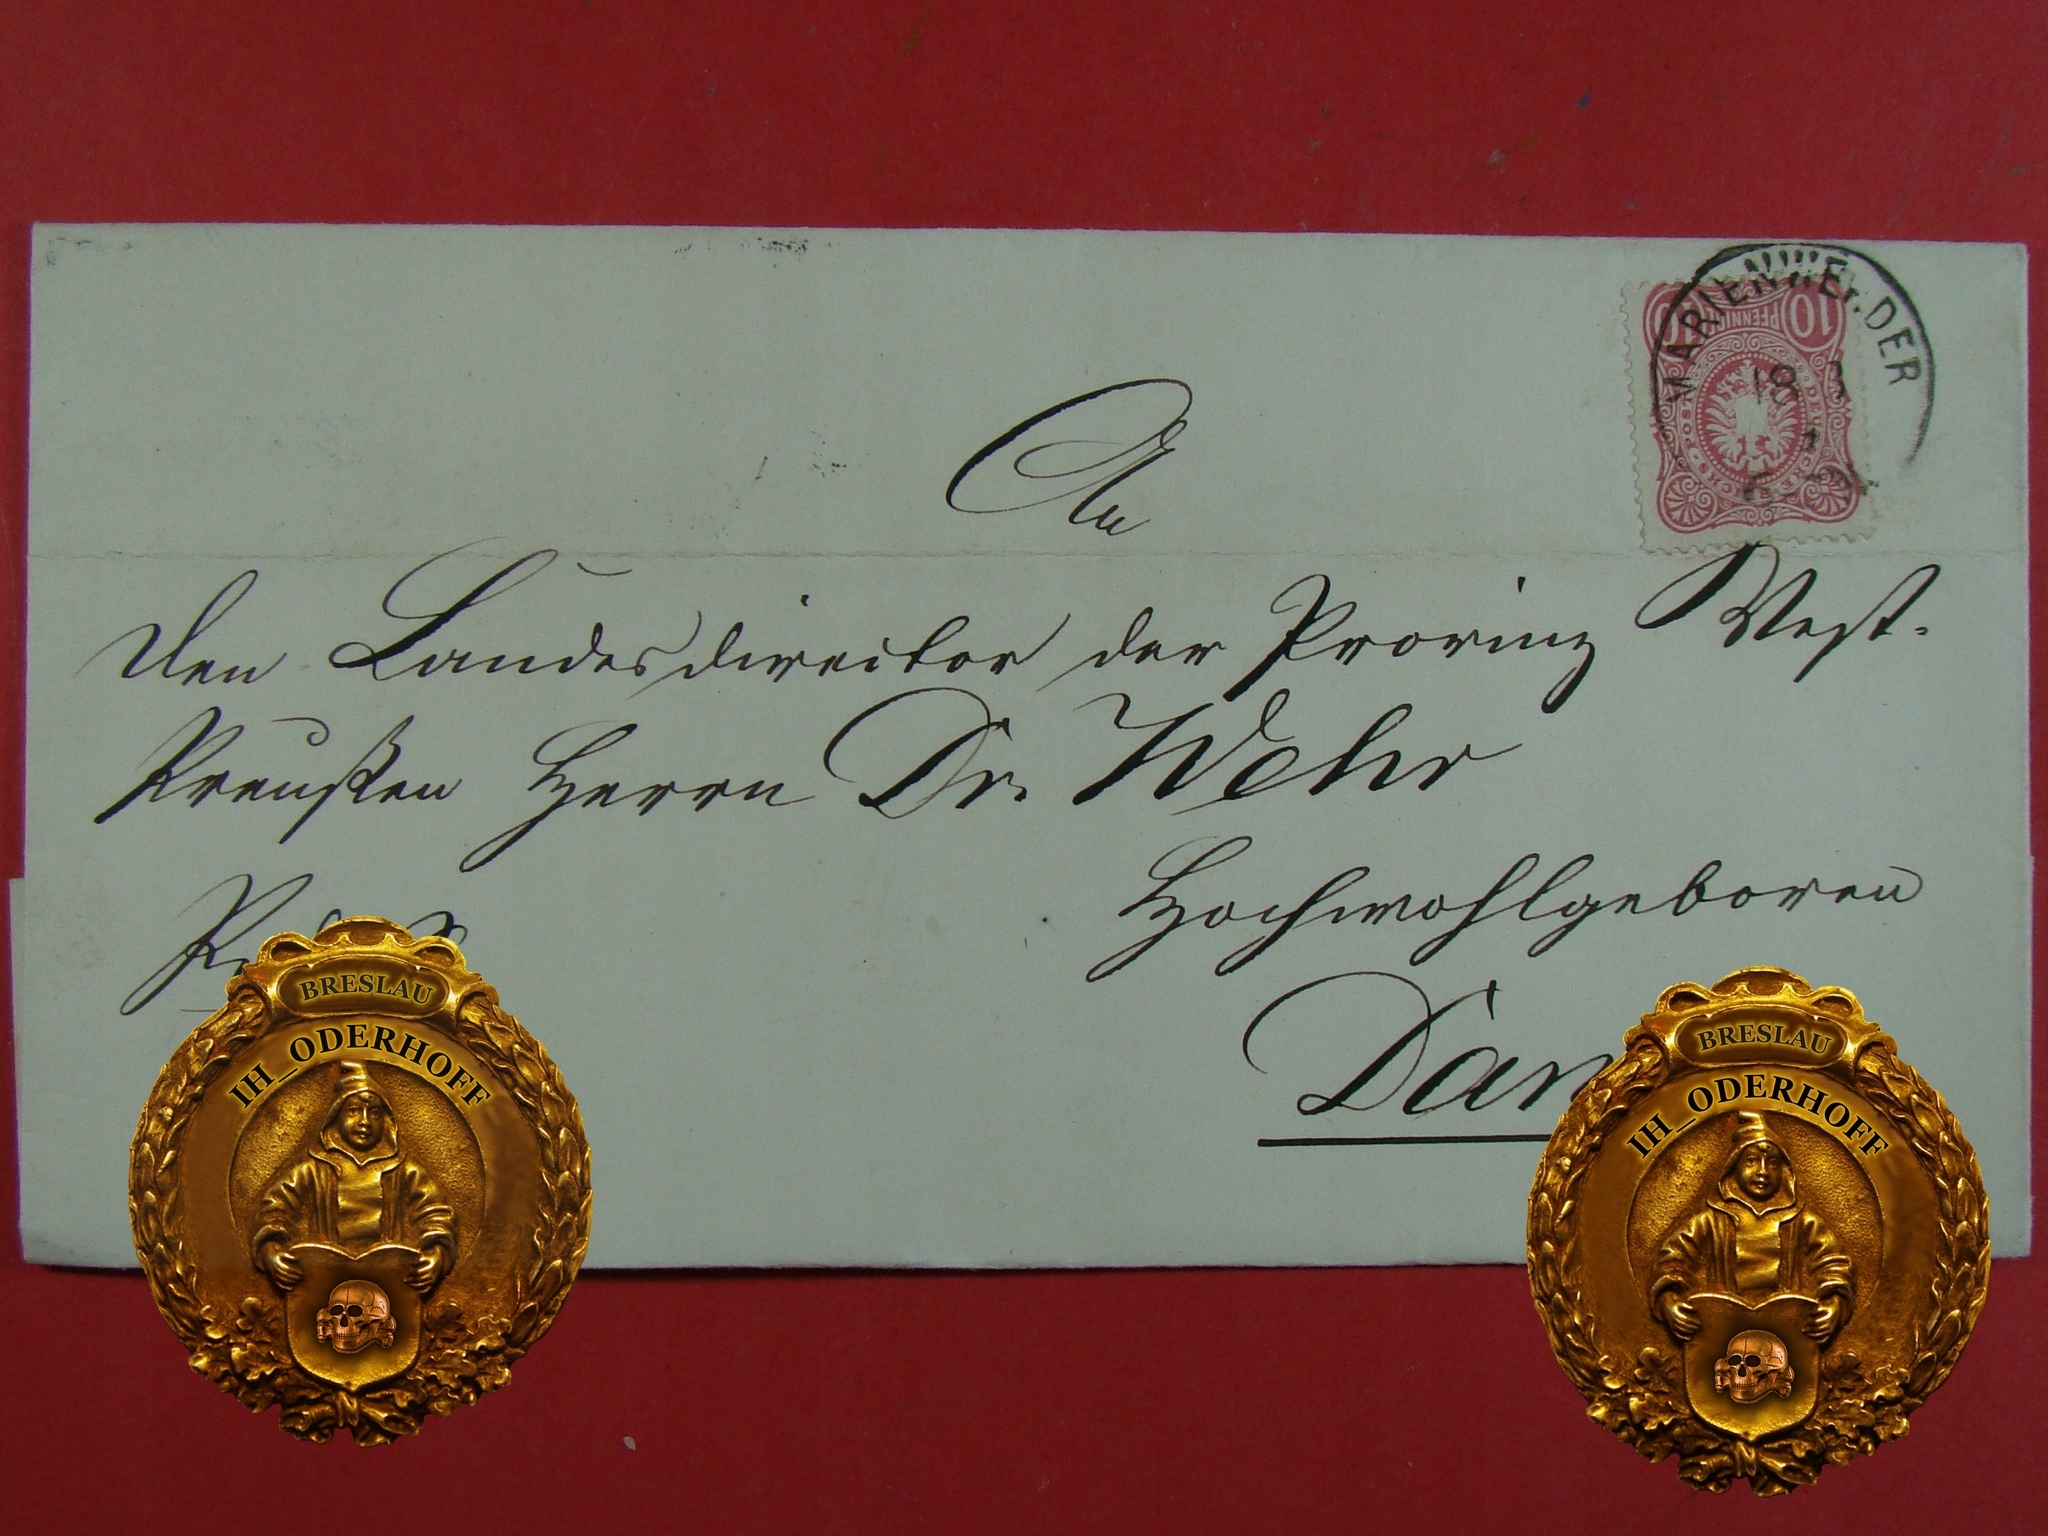 MARIENWERDER
18 3
10 PFENNIG 10
An
den Landesdirector der Provinz West-
Preußen Herrn Dr. Wehr
Hochwohlgeboren
BRESLAU
IH_ODERHOFF
BRESLAU
IH_ODERHOFF